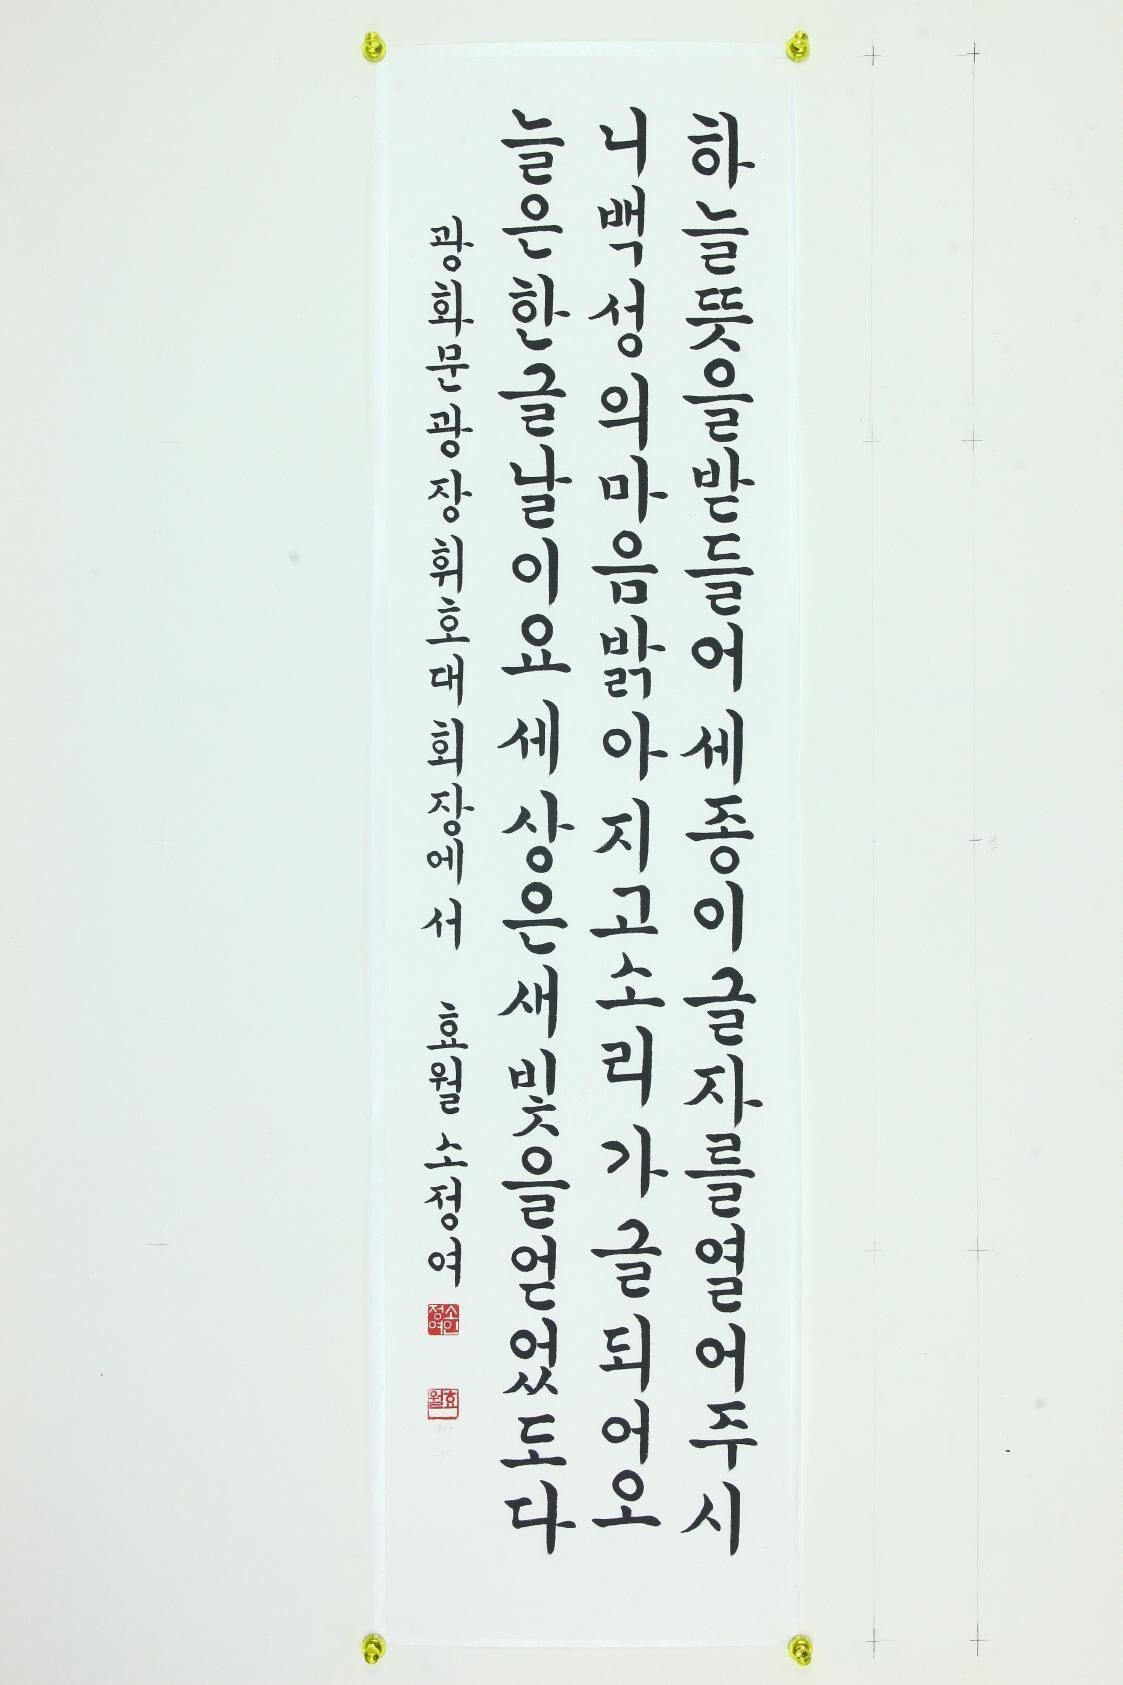 하늘뜻을받들어세종이글자를열어주시
니백성의마음밝아지고소리가글되어오
늘은한글날이요세상은새빛을얻었도다
광화문광장휘호대회장에서 효월소정여
소인정여
효월